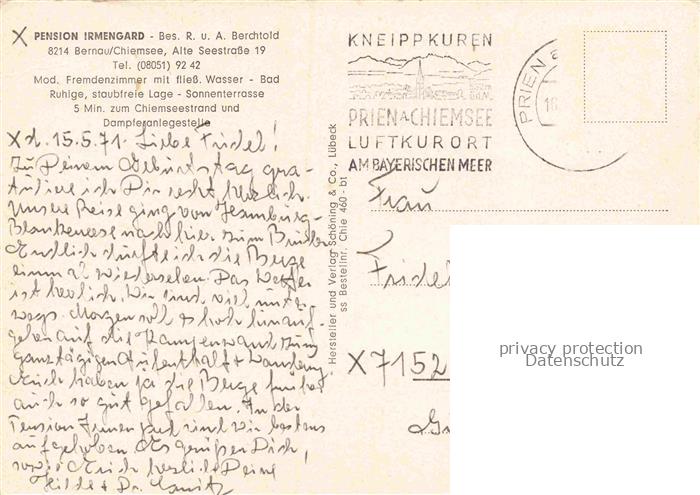 X PENSION IRMENGARD - Bes. R. u. A. Berchtold
8214 Bernau/Chiemsee, Alte Seestraße 19
Tel. (08051) 92 42
Mod. Fremdenzimmer mit fließ. Wasser - Bad
Ruhige, staubfreie Lage - Sonnenterrasse
5 Min. zum Chiemseestrand und
Dampferanlegestelle
X d. 15.5.71. Liebe Fridel!
Zu Deinem Geburtstag gra-
tuliere ich Dir recht herzlich.
Unsere Reise ging von Hamburg-
Blankenese nach hier zum Bruder
Endlich durfte ich die Berge
einmal wiedersehen. Das Wetter
ist herrlich. Wir sind viel unter-
wegs. Morgen soll es hoch hinauf-
gehen auf die Kampenwand zum
ganztägigen Aufenthalt + Wanderung.
Euch haben ja die Berge früher
auch so gut gefallen. In der
Pension Irmengard sind wir bestens
aufgehoben. Es grüßen Dich,
sowie Euch herzlich Deine
Hilde + Dr.
Hersteller und Verlag Schöning & Co., Lübeck
ss Bestellnr. Chie 460 - bt
KNEIPPKUREN
PRIEN A. CHIEMSEE
LUFTKURORT
AM BAYERISCHEN MEER
PRIEN a
18
Frau
Fridel
X 7152
privacy protection
Datenschutz